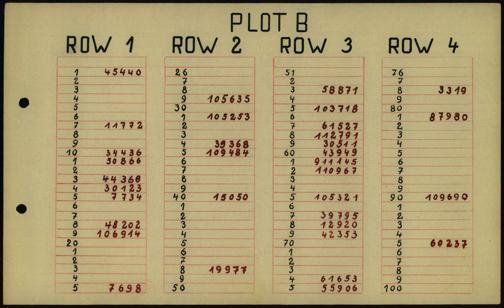 PLOT B
ROW 1 ROW 2 ROW 3 ROW 4
1 45440 26 51 76
2 7 2 7
3 8 3 58871 8 3319
4 9 105635 4 9
5 30 5 103718 80
6 1 105253 6 1 87980
7 11772 2 7 61527 2
8 3 8 112791 3
9 4 39368 9 30511 4
10 34436 5 109484 60 43949 5
1 50866 6 1 911145 6
2 7 2 110967 7
3 44368 8 3 8
4 30123 9 4 9
5 7734 40 15050 5 105321 90 109690
6 1 6 1
7 2 7 39795 2
8 48202 3 8 12920 3
9 106914 4 9 42353 4
20 5 70 5 60237
1 6 1 6
2 7 2 7
3 8 19977 3 8
4 9 4 61653 9
5 7698 50 5 55906 100